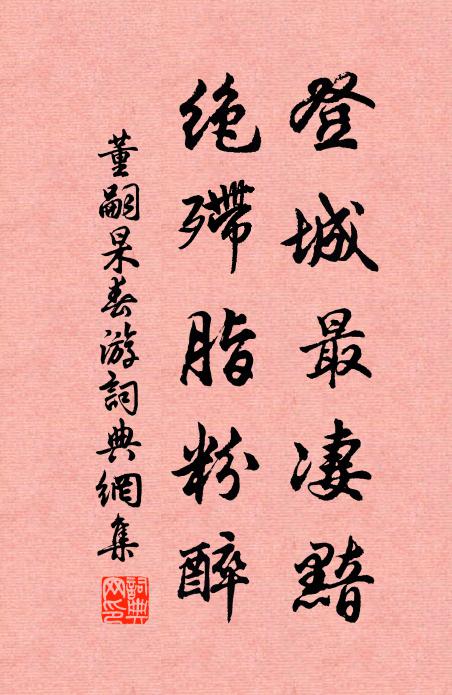 登城最凄黯
绝殢脂粉醉
董嗣杲春游詞典網集
詞典网印